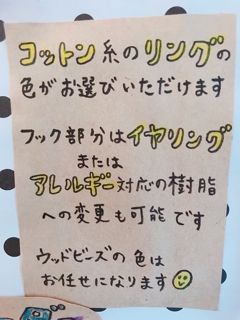 コットン糸のリングの
色がお選びいただけます
フック部分はイヤリング
または
アレルギー対応の樹脂
への変更も可能です
ウッドビーズの色は
お任せになります